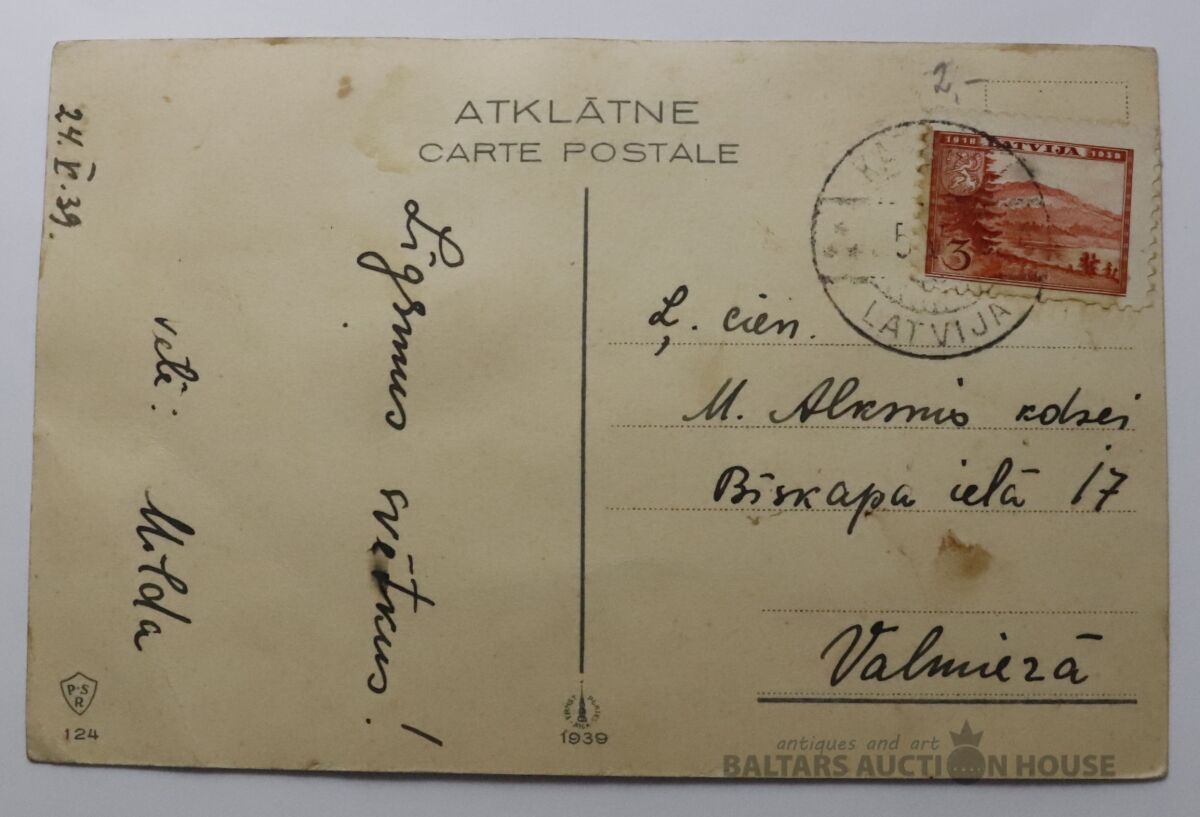 ATKLĀTNE
CARTE POSTALE
2,-
1918 LATVIJA 1938
3
KA
5
LATVIJA
24. 39.
Līgsmus svētkus!
vēlē:
Milda
Ļ. cien.
M. Alksnis kdzei
Bīskapa ielā 17
Valmierā
P.S
R
124
1939
antiques and art
BALTARS AUCTION HOUSE